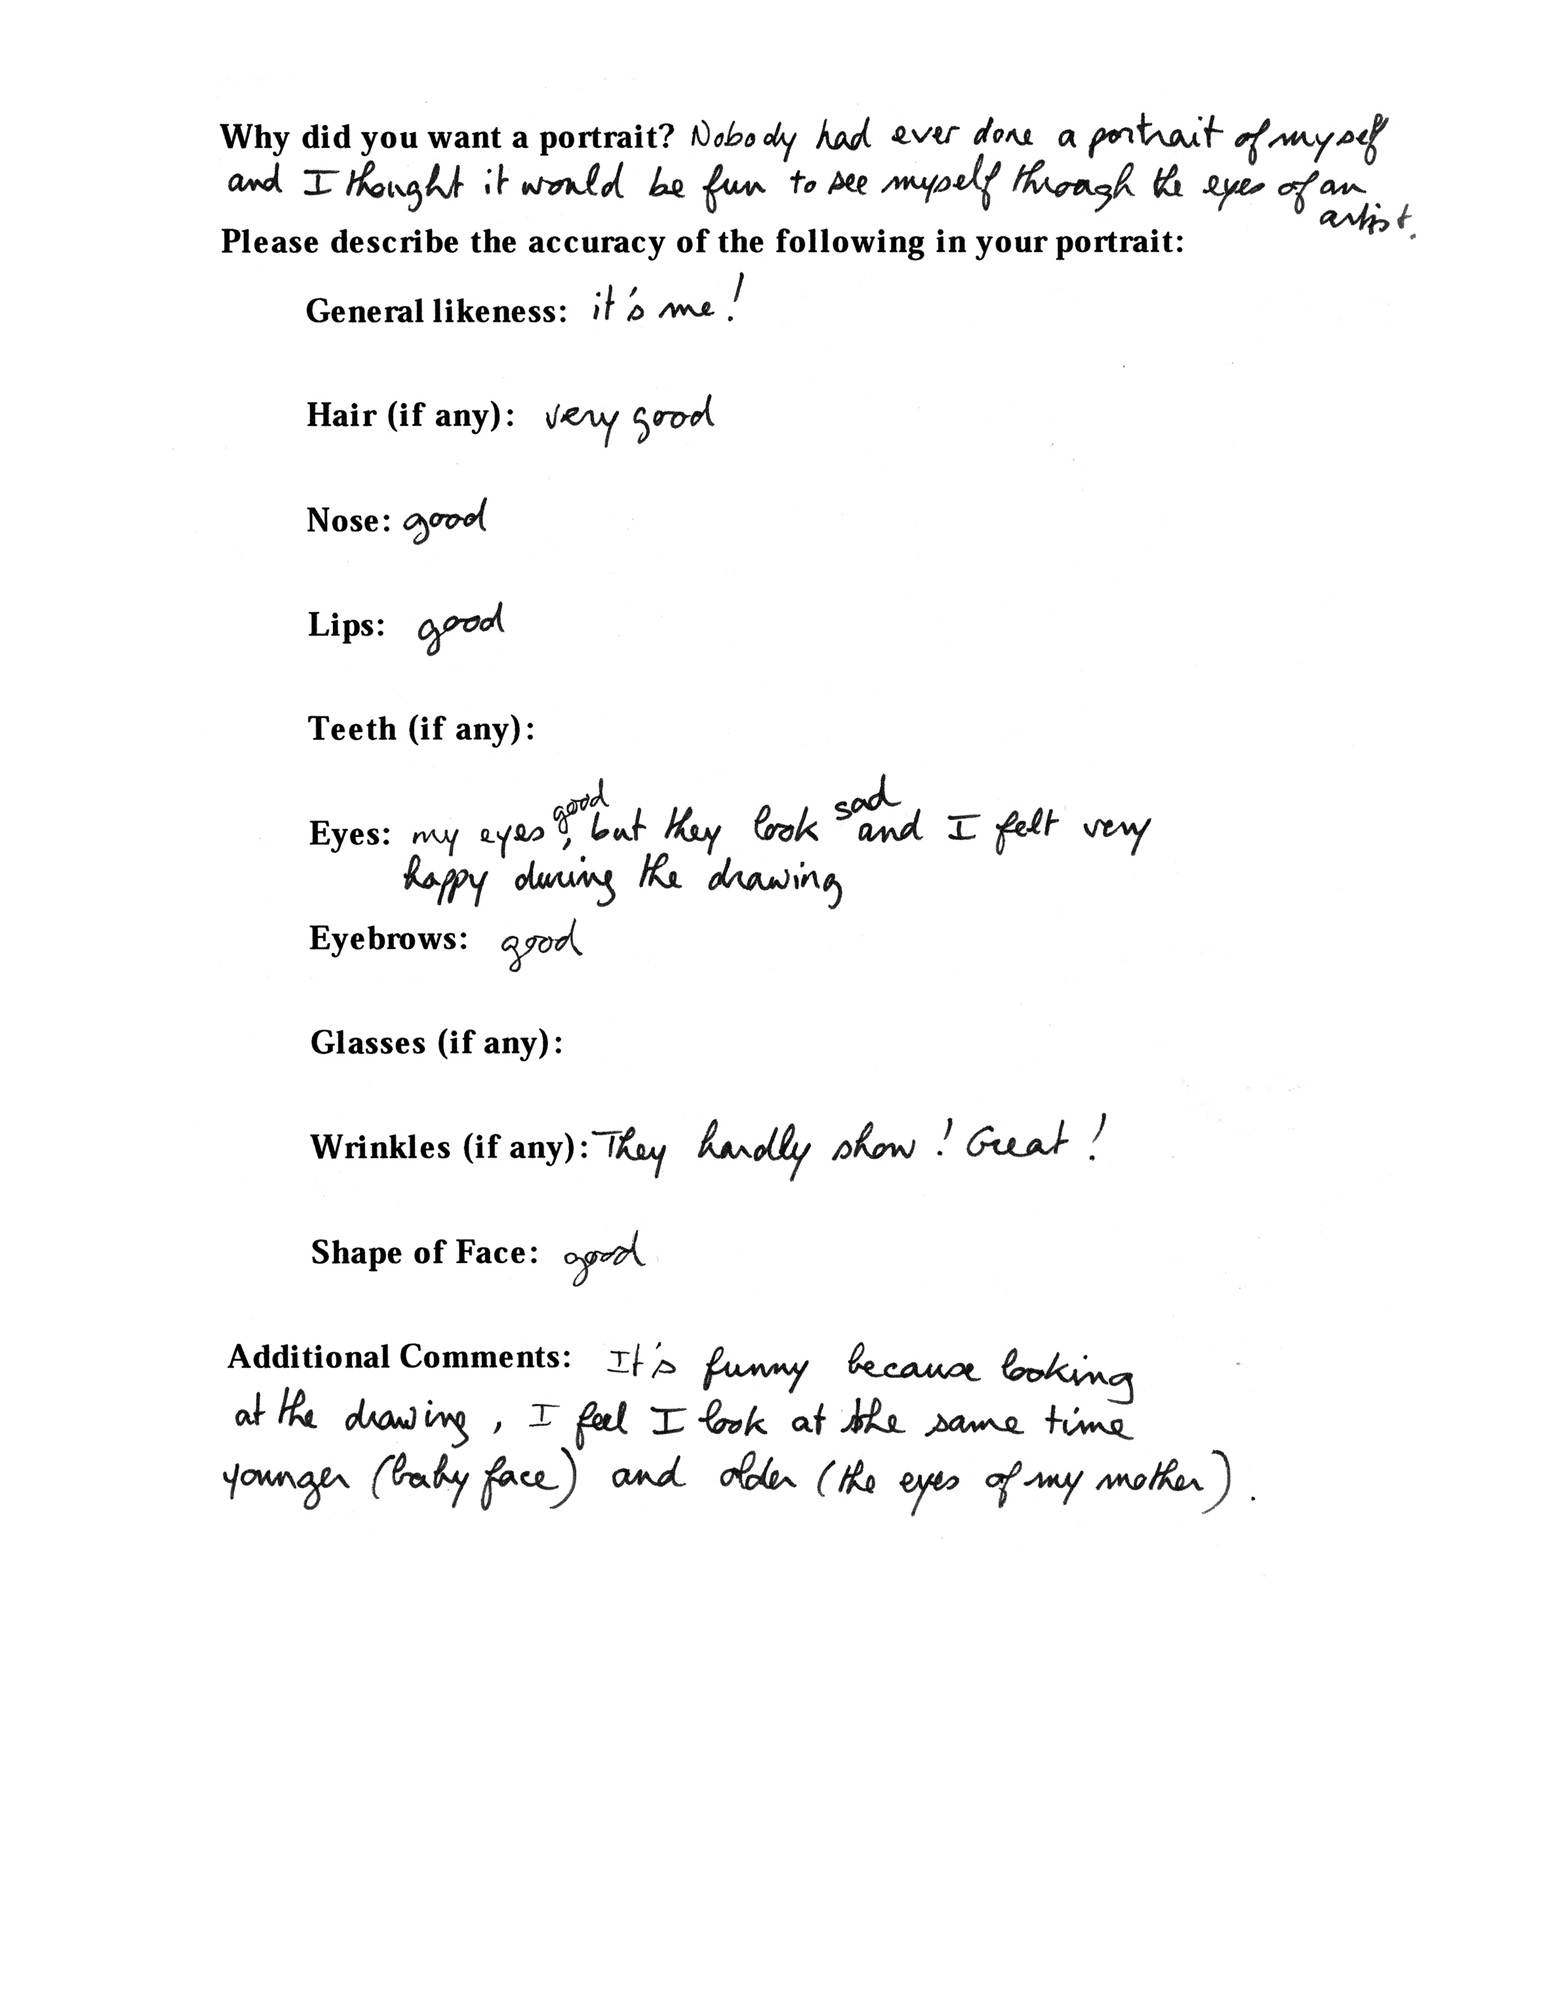 Why did you want a portrait? Nobody had ever done a portrait of myself
and I thought it would be fun to see myself through the eyes of an
artist.
Please describe the accuracy of the following in your portrait:
General likeness: it's me!
Hair (if any): very good
Nose: good
Lips: good
Teeth (if any):
Eyes: my eyes good, but they look sad and I felt very
happy during the drawing
Eyebrows: good
Glasses (if any):
Wrinkles (if any): They hardly show! Great!
Shape of Face: good
Additional Comments: It's funny because looking
at the drawing, I feel I look at the same time
younger (baby face) and older (the eyes of my mother).